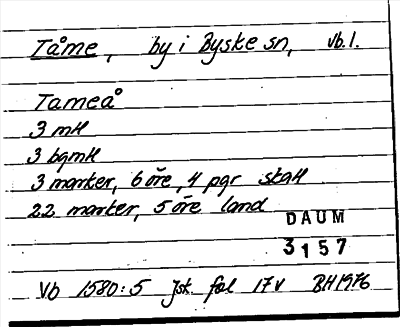 Tåme, by i Byske sn, Vb.l.
Tameå
3 mtl
3 bgmtl
3 marker, 6 öre, 4 pgr skatt
22 marker, 5 öre land
DAUM
3157
Vb 1580:5 Jst fol 17v BH1976